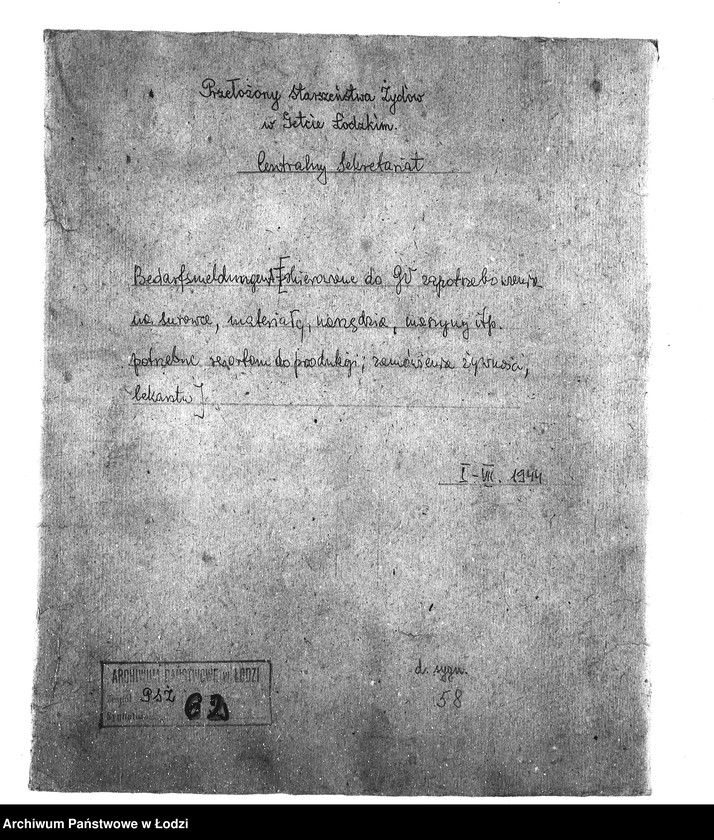 Przełożony Starszeństwa Żydów
w Getcie Łódzkim.
Centralny Sekretariat
Bedarfsmeldungen [skierowane do GV zapotrzebowania
na surowce, materiały, narzędzia, maszyny itp.
potrzebne resortom do produkcji; zamówienia żywności,
lekarstw]
I-VII. 1944
ARCHIWUM PAŃSTWOWE w ŁODZI
Zespół PSŻ
Sygnatura 62
d. sygn.
58
Archiwum Państwowe w Łodzi